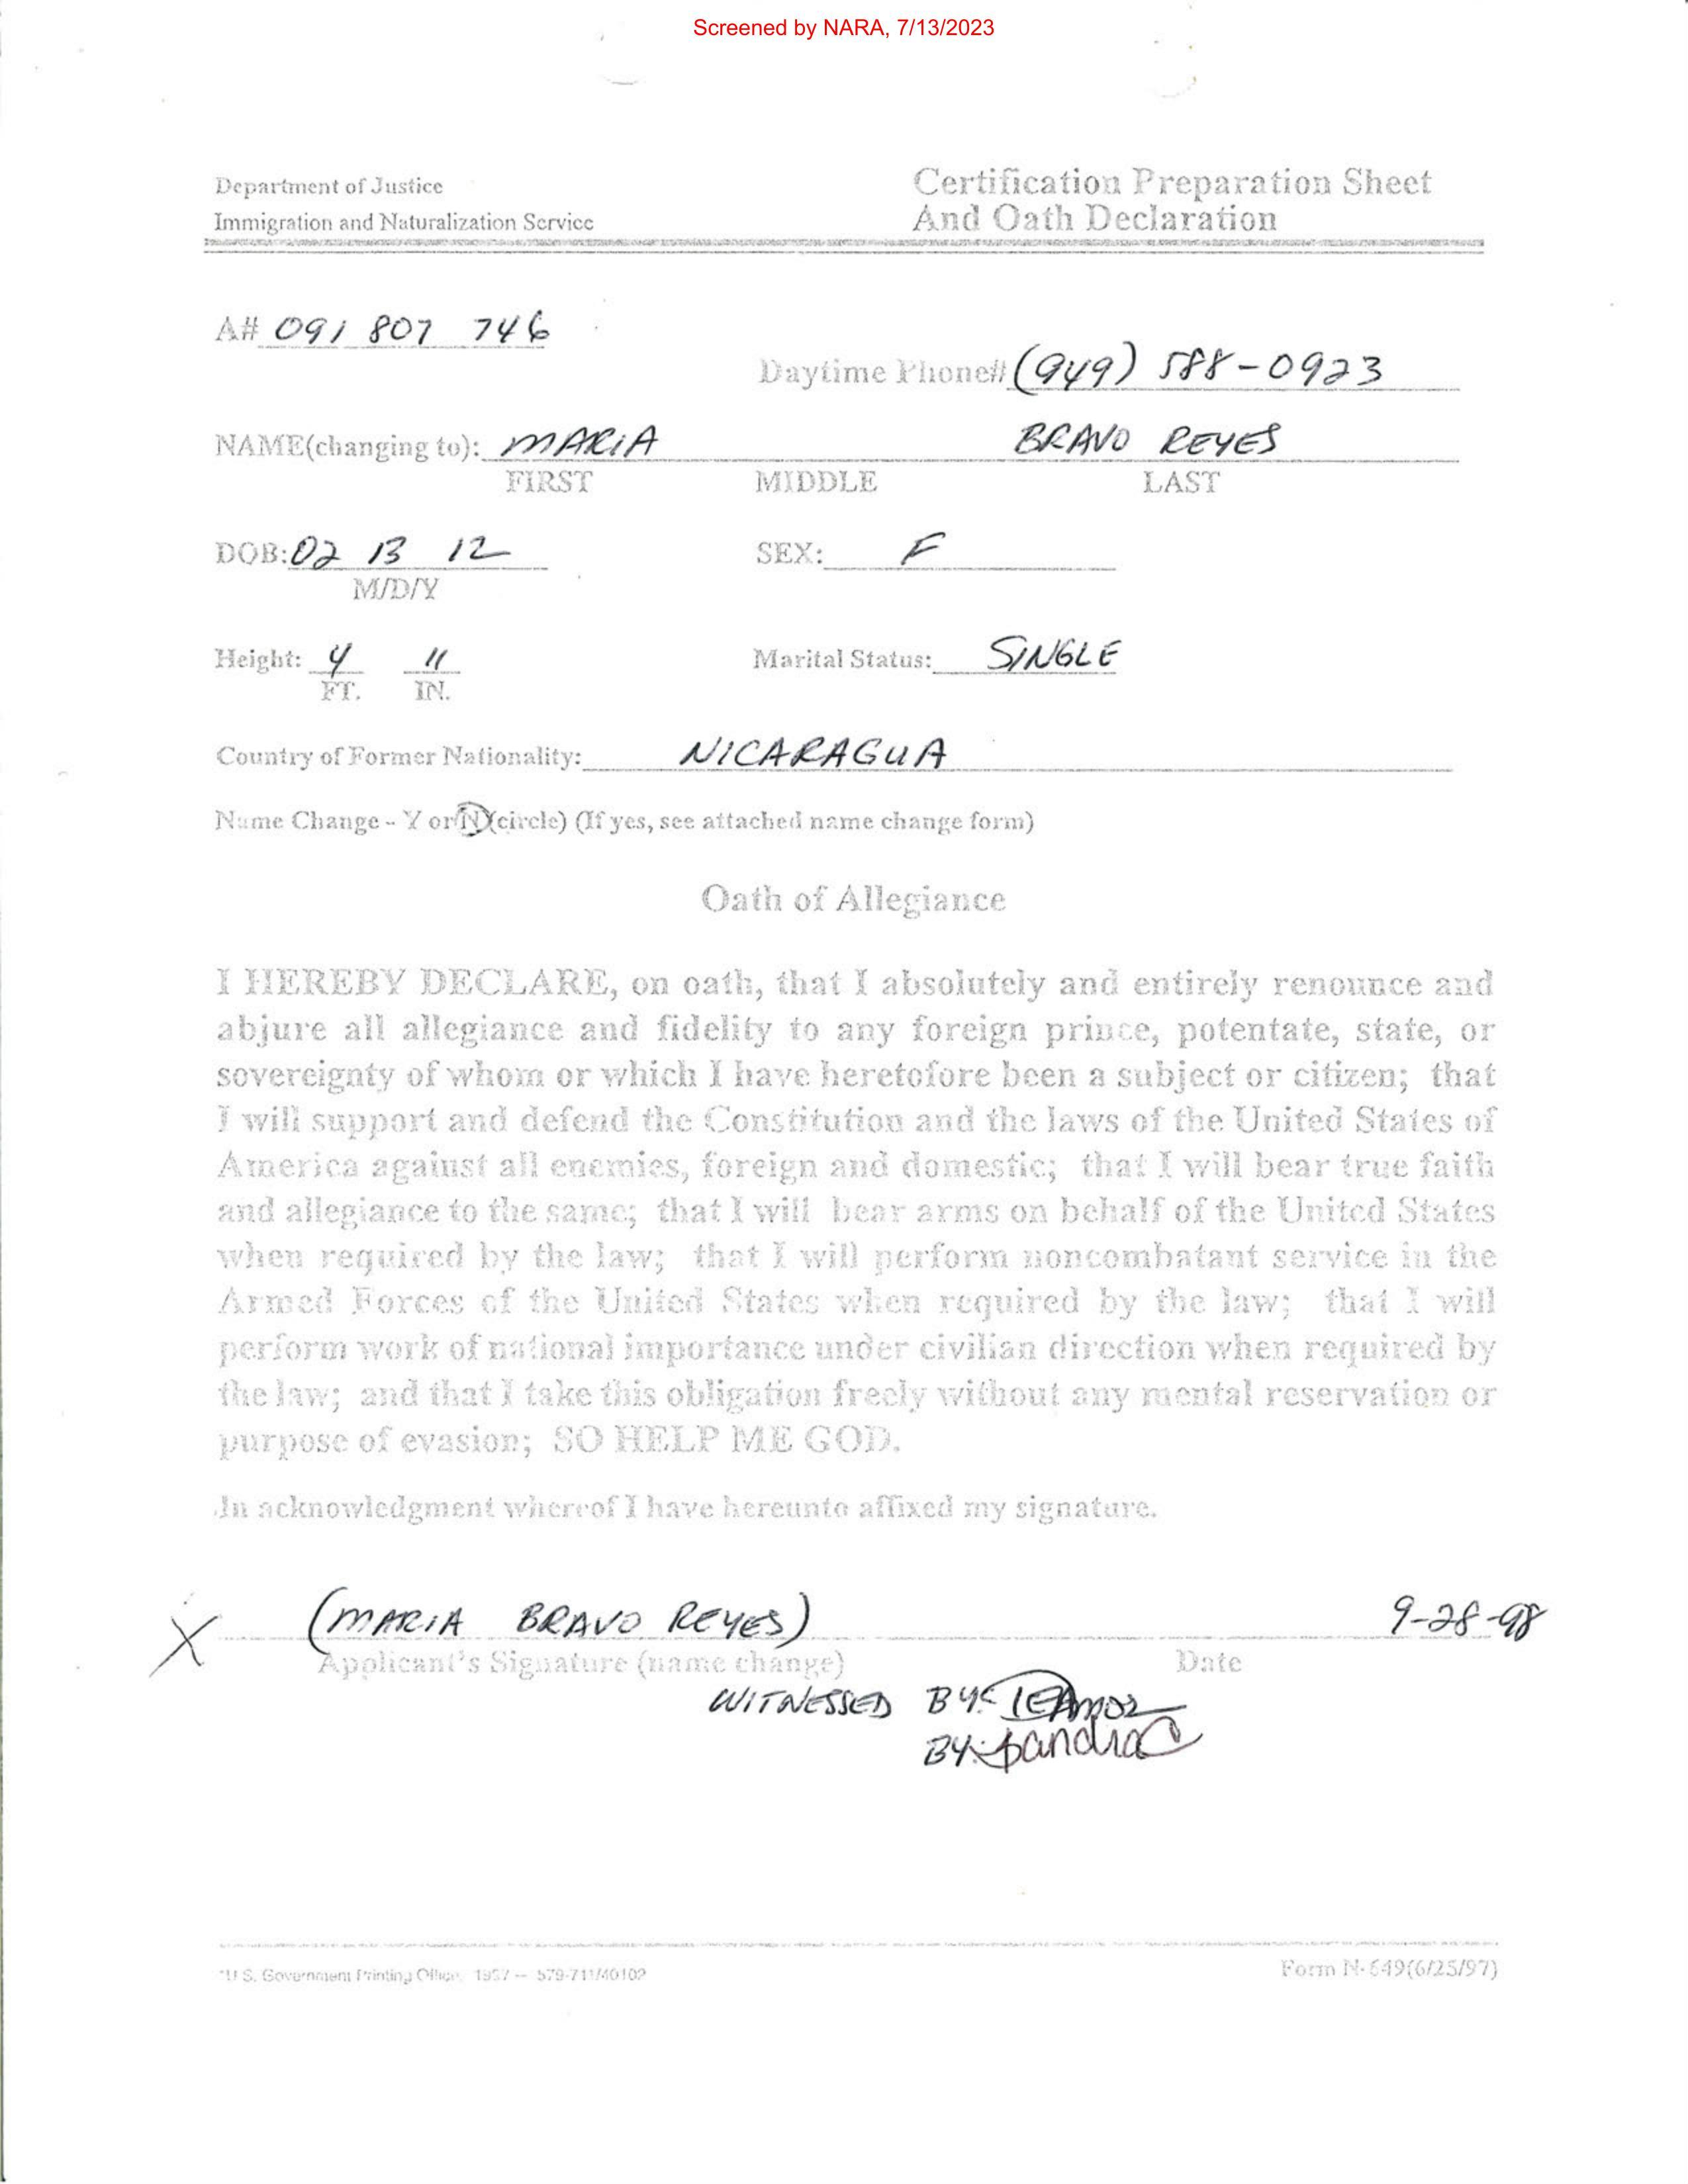 Screened by NARA, 7/13/2023
Department of Justice
Immigration and Naturalization Service
Certification Preparation Sheet
And Oath Declaration
A# 091 807 746
Daytime Phone# (949) 588-0923
NAME(changing to): MARIA BRAVO REYES
FIRST MIDDLE LAST
DOB: 02 13 12 SEX: F
M/D/Y
Height: 4 11 Marital Status: SINGLE
FT. IN.
Country of Former Nationality: NICARAGUA
Name Change - Y or N (circle) (If yes, see attached name change form)
Oath of Allegiance
I HEREBY DECLARE, on oath, that I absolutely and entirely renounce and
abjure all allegiance and fidelity to any foreign prince, potentate, state, or
sovereignty of whom or which I have heretofore been a subject or citizen; that
I will support and defend the Constitution and the laws of the United States of
America against all enemies, foreign and domestic; that I will bear true faith
and allegiance to the same; that I will bear arms on behalf of the United States
when required by the law; that I will perform noncombatant service in the
Armed Forces of the United States when required by the law; that I will
perform work of national importance under civilian direction when required by
the law; and that I take this obligation freely without any mental reservation or
purpose of evasion; SO HELP ME GOD.
In acknowledgment whereof I have hereunto affixed my signature.
X (MARIA BRAVO REYES) 9-28-98
Applicant's Signature (name change) Date
WITNESSED BY:
BY: Sandra
*U.S. Government Printing Office: 1997 - 579-711/40102
Form N-649(6/25/97)